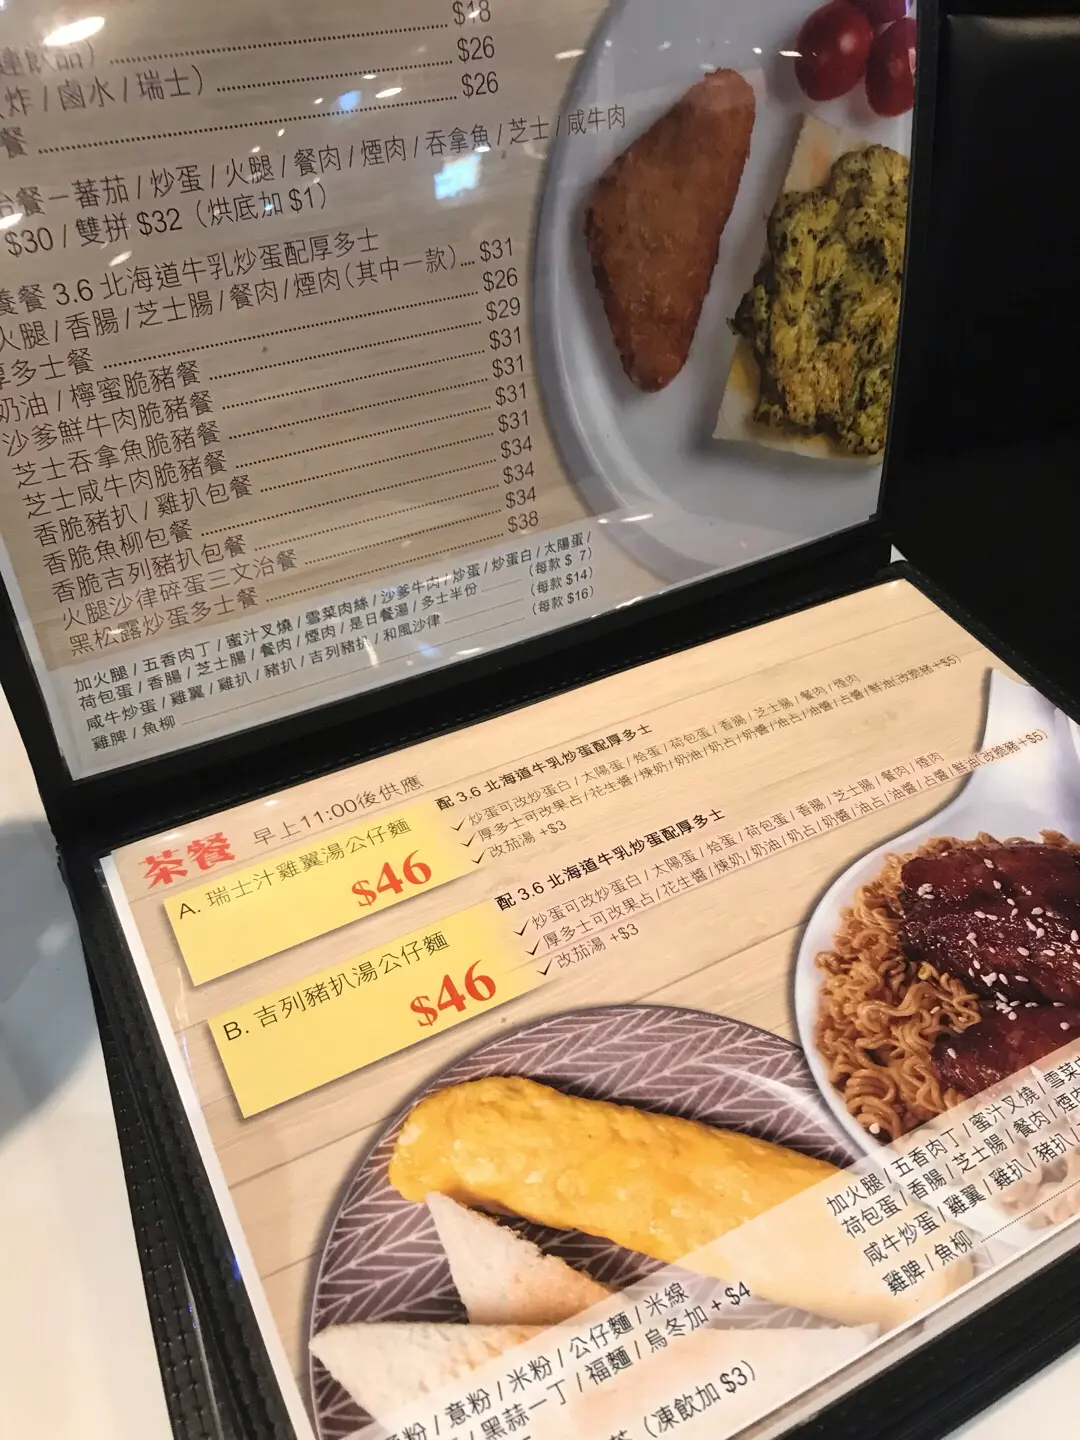 $18
連飲品) $26
炸 / 鹵水 / 瑞士) $26
餐
治餐－蕃茄 / 炒蛋 / 火腿 / 餐肉 / 煙肉 / 吞拿魚 / 芝士 / 咸牛肉
$30 / 雙拼 $32 (烘底加 $1)
養餐 3.6 北海道牛乳炒蛋配厚多士
火腿 / 香腸 / 芝士腸 / 餐肉 / 煙肉 (其中一款) $31
厚多士餐 $26
奶油 / 檸蜜脆豬餐 $29
沙爹鮮牛肉脆豬餐 $31
芝士吞拿魚脆豬餐 $31
芝士咸牛肉脆豬餐 $31
香脆豬扒 / 雞扒包餐 $31
香脆魚柳包餐 $34
香脆吉列豬扒包餐 $34
火腿沙律碎蛋三文治餐 $34
黑松露炒蛋多士餐 $38
加火腿 / 五香肉丁 / 蜜汁叉燒 / 雪菜肉絲 / 沙爹牛肉 / 炒蛋 / 炒蛋白 / 太陽蛋 /
荷包蛋 / 香腸 / 芝士腸 / 餐肉 / 煙肉 / 是日餐湯 / 多士半份 (每款 $ 7)
咸牛炒蛋 / 雞翼 / 雞扒 / 豬扒 / 吉列豬扒 / 和風沙律 (每款 $14)
雞脾 / 魚柳 (每款 $16)
茶餐 早上11:00後供應
A. 瑞士汁雞翼湯公仔麵
$46
配 3.6 北海道牛乳炒蛋配厚多士
✓ 炒蛋可改炒蛋白 / 太陽蛋 / 烚蛋 / 荷包蛋 / 香腸 / 芝士腸 / 餐肉 / 煙肉
✓ 厚多士可改果占 / 花生醬 / 煉奶 / 奶油 / 奶占 / 奶醬 / 油占 / 油醬 / 占醬 / 鮮油 (改脆豬+$5)
✓ 改茄湯 +$3
B. 吉列豬扒湯公仔麵
$46
配 3.6 北海道牛乳炒蛋配厚多士
✓ 炒蛋可改炒蛋白 / 太陽蛋 / 烚蛋 / 荷包蛋 / 香腸 / 芝士腸 / 餐肉 / 煙肉
✓ 厚多士可改果占 / 花生醬 / 煉奶 / 奶油 / 奶占 / 奶醬 / 油占 / 油醬 / 占醬 / 鮮油 (改脆豬+$5)
✓ 改茄湯 +$3
加火腿 / 五香肉丁 / 蜜汁叉燒 / 雪菜
荷包蛋 / 香腸 / 芝士腸 / 餐肉 / 煙肉
咸牛炒蛋 / 雞翼 / 雞扒 / 豬扒 /
雞脾 / 魚柳
粉 / 意粉 / 米粉 / 公仔麵 / 米線
/ 黑蒜一丁 / 福麵 / 烏冬加 + $4
茶 (凍飲加 $3)